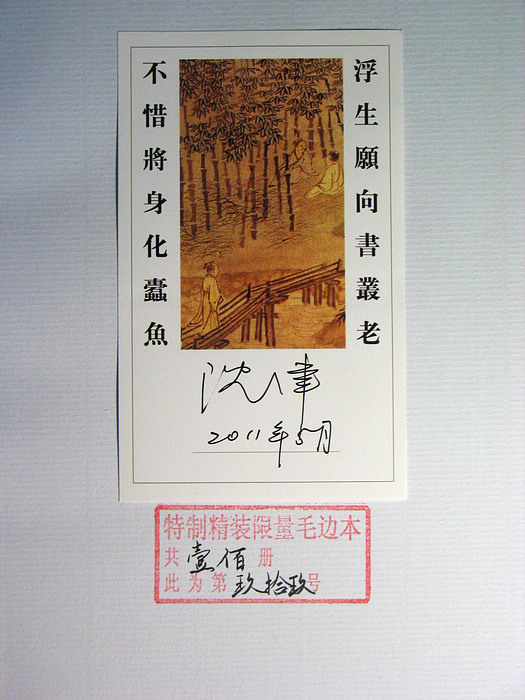 浮生願向書叢老
不惜將身化蠹魚
沈津
2011年5月
特制精装限量毛边本
共壹佰册
此为第玖拾玖号